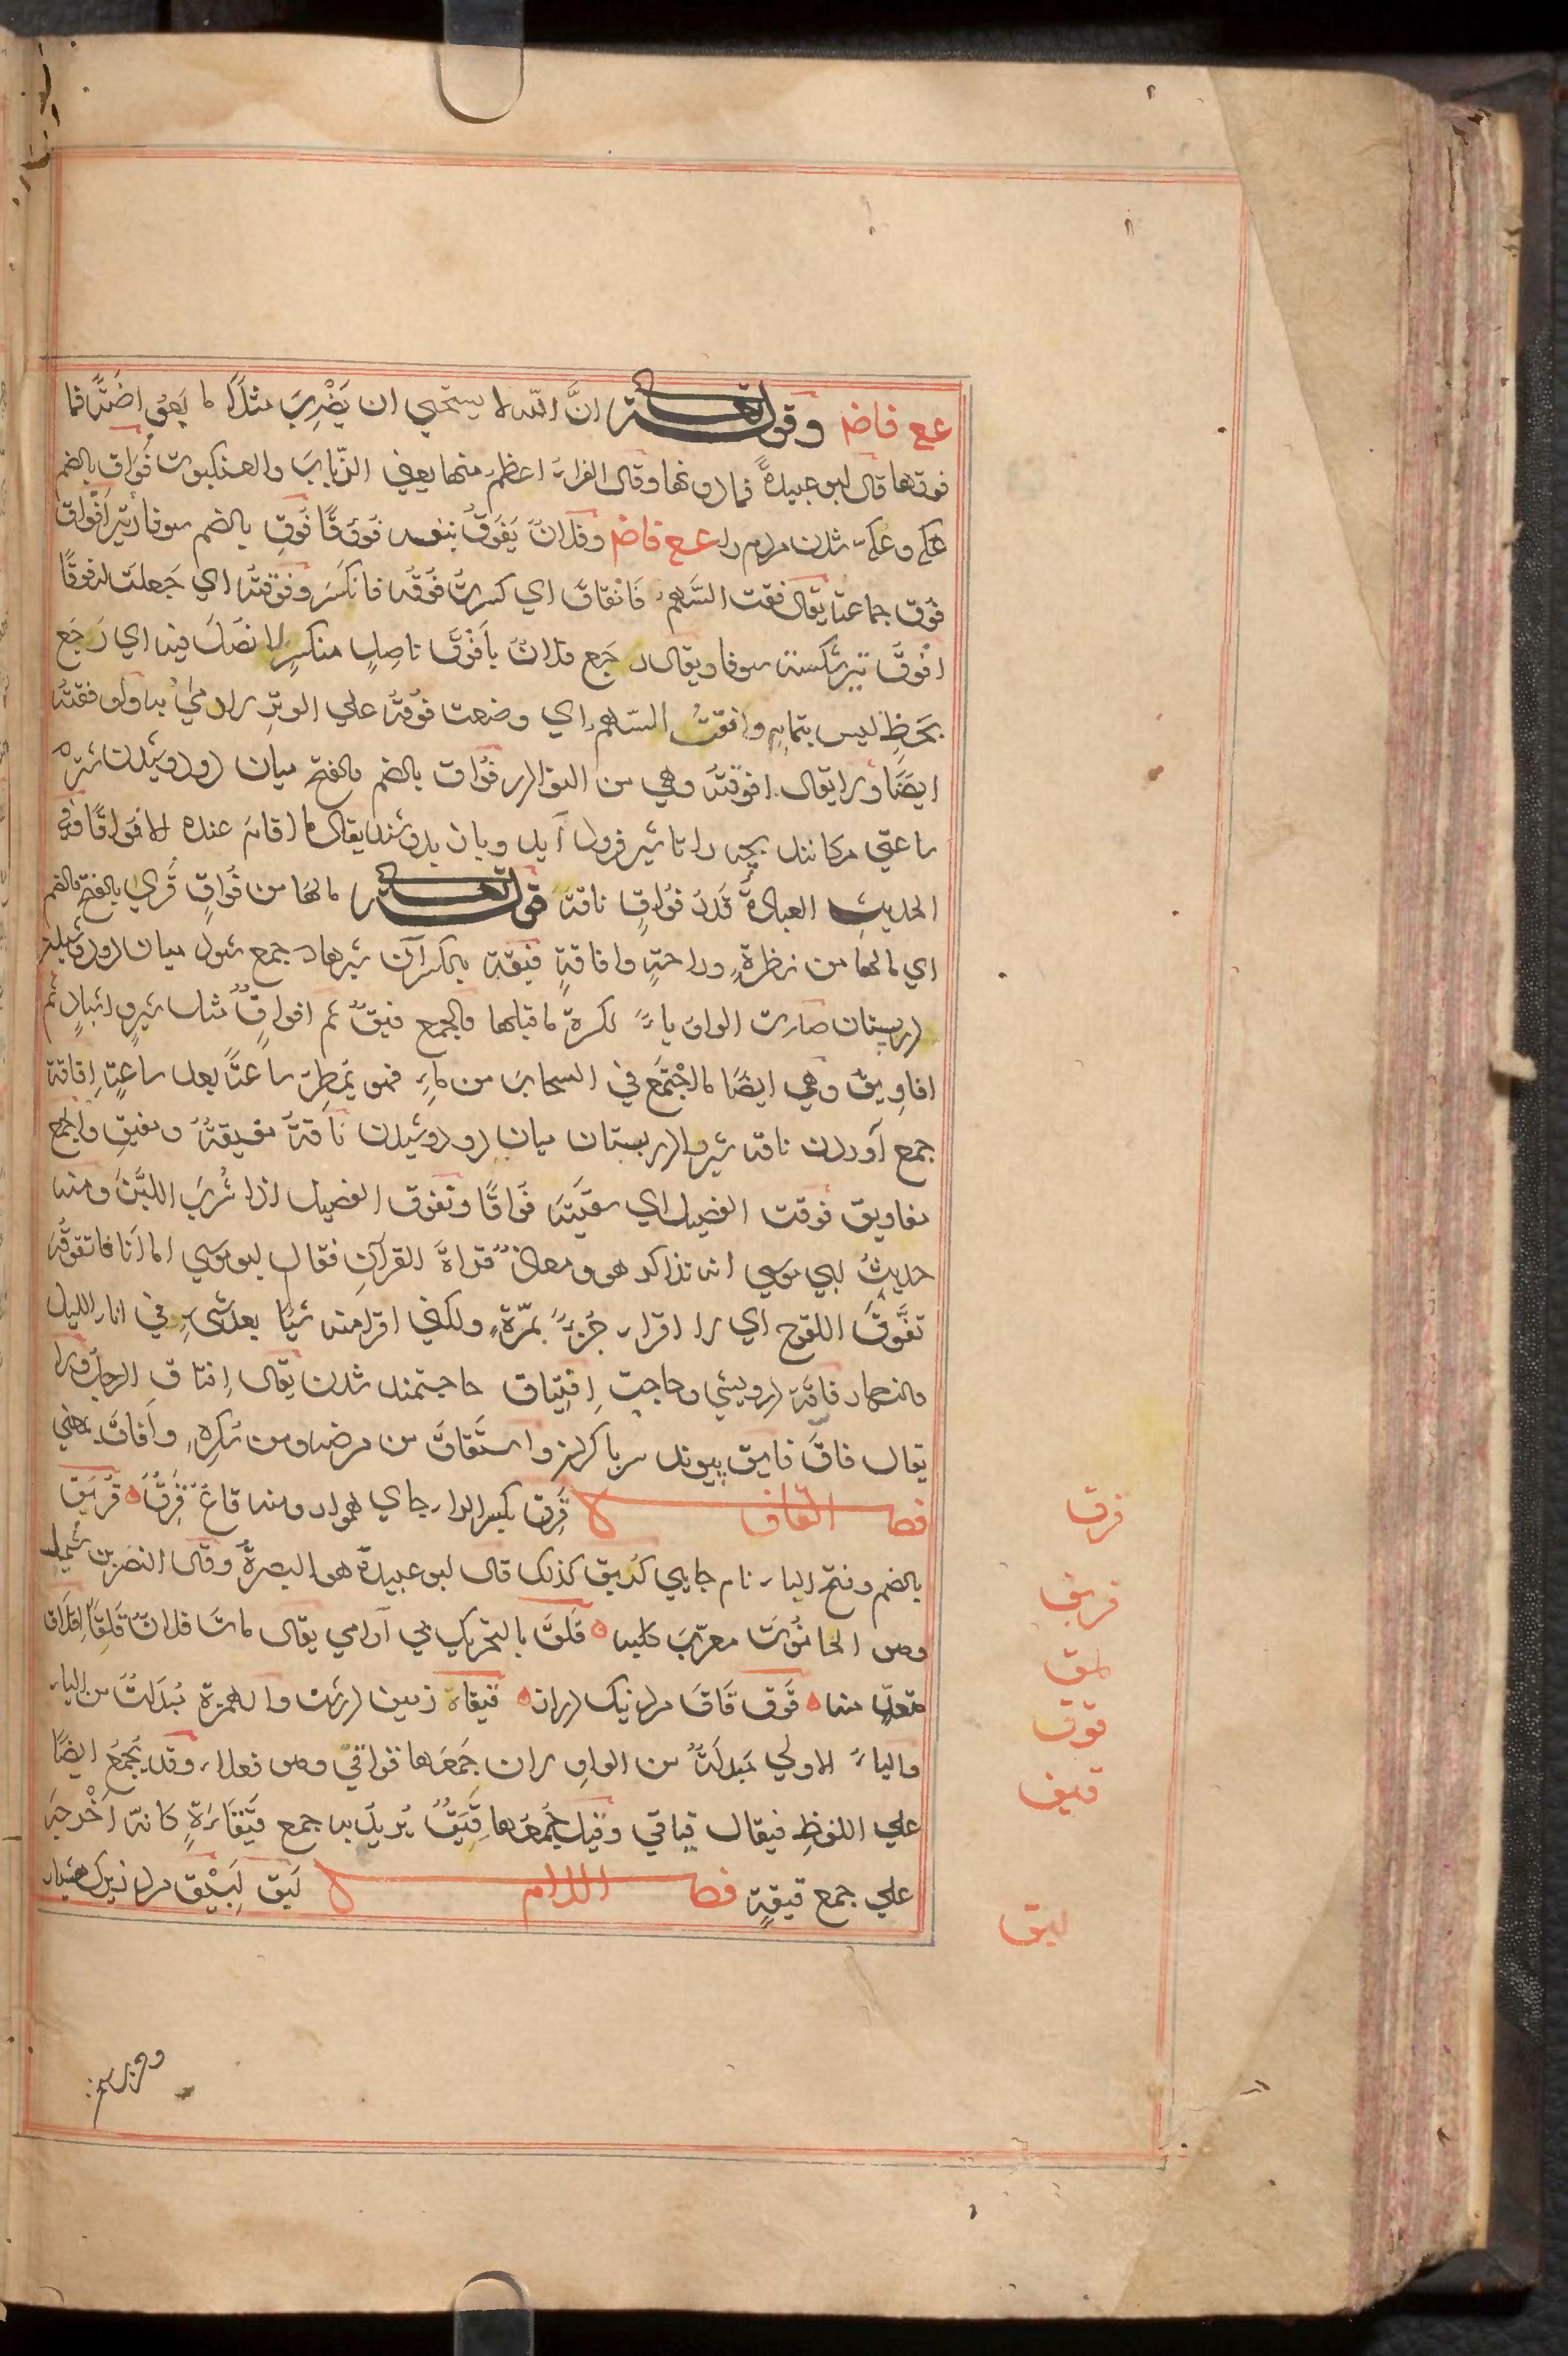 عع فاض وقوله تعالى انَّ الله لا يستحيي ان يَضْرِبَ مثلاً ما بَعوضَةً فما
فوقها قال ابو عبيدةً فما دونها وقال الفراءُ اعظمُ منها يعني الذّبابَ والعنكبوت فُوَاق بالضم
شدن مردم را عع فاض وفلانٌ يَفوقُ بنفسه فُوُوقًا فُوق بالضم سوفار تير اَفْواق
فُوَق جماعة يقال فقت السَّهمَ فَانْفَاقَ اي كسرتُ فُوْقَه فانكَسَرَ وفوّقتُه اي جَعلت له فوقًا
افْوَق تير شكسته سوفار يقال رجَع فلانٌ بِاَفْوَقَ ناصِلٍ منكسرٍ لا نصَلَ فيه اي رَجَع
بحَظٍّ ليس بتمامٍ وافقتُ السّهم اي وضعت فوقَهُ علي الوتر لارمي به واوفقته
ايضًا ولا يقال افوقته وهي من النوادر فُواق بالضم والفتح ميان دو دوشيدن شتر كه
ساعتي بچه را تا شير فرود آيد وباز بدوشند يقال ما اقام عنده الا فُوَاقًا وفي
الحديث العيادةُ قَدرُ فُواقِ ناقة قوله تعالى مالها من فُواقٍ قُري بالفتح والضم
اي مالها من نظرةٍ وراحةٍ وافاقةٍ فيقة بالكسر آن شيرها جمع شود ميان دو دوشيدن
در پستان صارت الواو ياءً لكسرة ماقبلها والجمع فيقٌ ثم افواقٌ مثل شبرٍ واشبارٍ ثم
افاوِيق وهي ايضًا ما اجْتَمَعَ في السحاب من ماءٍ فهو يُمطِر ساعةً بعد ساعةٍ اِفاقة
جمع آوردن ناقه شير را در پستان ميان دو دوشيدن ناقةٌ مفيقةٌ ومفيق والجمع
مفاويق فوقت الفصيل اي سقيتَه فُوَاقًا وتفوق الفصيل اذا شَرِبَ اللبَنَ ومنه
حديثُ ابي موسي انه تذاكر هو ومعاذٌ قراةَ القرآنِ فقال ابو موسي امّا انا فاتفوقُه
تفَوُّقَ اللقوح اي لا اقراء جُزءً بمرّةٍ ولكني اقرا منه شيًا بعد شيءٍ في اناء الليل
والنهار فاقَة درويشي وحاجت اِفتِيَاق حاجتمند شدن يقال اِفتاق الرجل ولا
يقال فاق فايق پيوند سر با كردن واستَفَاقَ من مرضه ومن سُكرِهِ وَاَفَاقَ بمعني
فصل القاف قَرِق بكسر الراء جاي هموار ومنه قاعٌ قَرِقٌ قُربَق
بالضم وفتح الباء نام جايي كُربق كذلك قال ابو عبيدة هو البصرةُ وقال النضر بن شميل
وهو الحانُوت معرّبَ كلبه قَلَق بالتحريك بي آرامي يقال باتَ فلانٌ قَلِقًا اِقلاق
متعدٍّ منه قَوق قَاق مرد نيك دراز قِيقاء زمين درشت والهمزة مُبدَلةٌ من الياء
والياءُ الاولي مُبدلَةٌ من الواو لان جَمعَها قواقيّ وهو فعلاء وقد يُجمعُ ايضًا
علي اللفظِ فيقال قياقي وقيل جُمعُها قِيَقٌ يُريد به جمع قِيْقَاءَةٍ كانه اَخْرجه
علي جمع قيقةٍ فصل اللام لَبِق لَبِيْق مرد زيرك هشيار
قرق
قربق
قلق
قوق
قيق
لبق